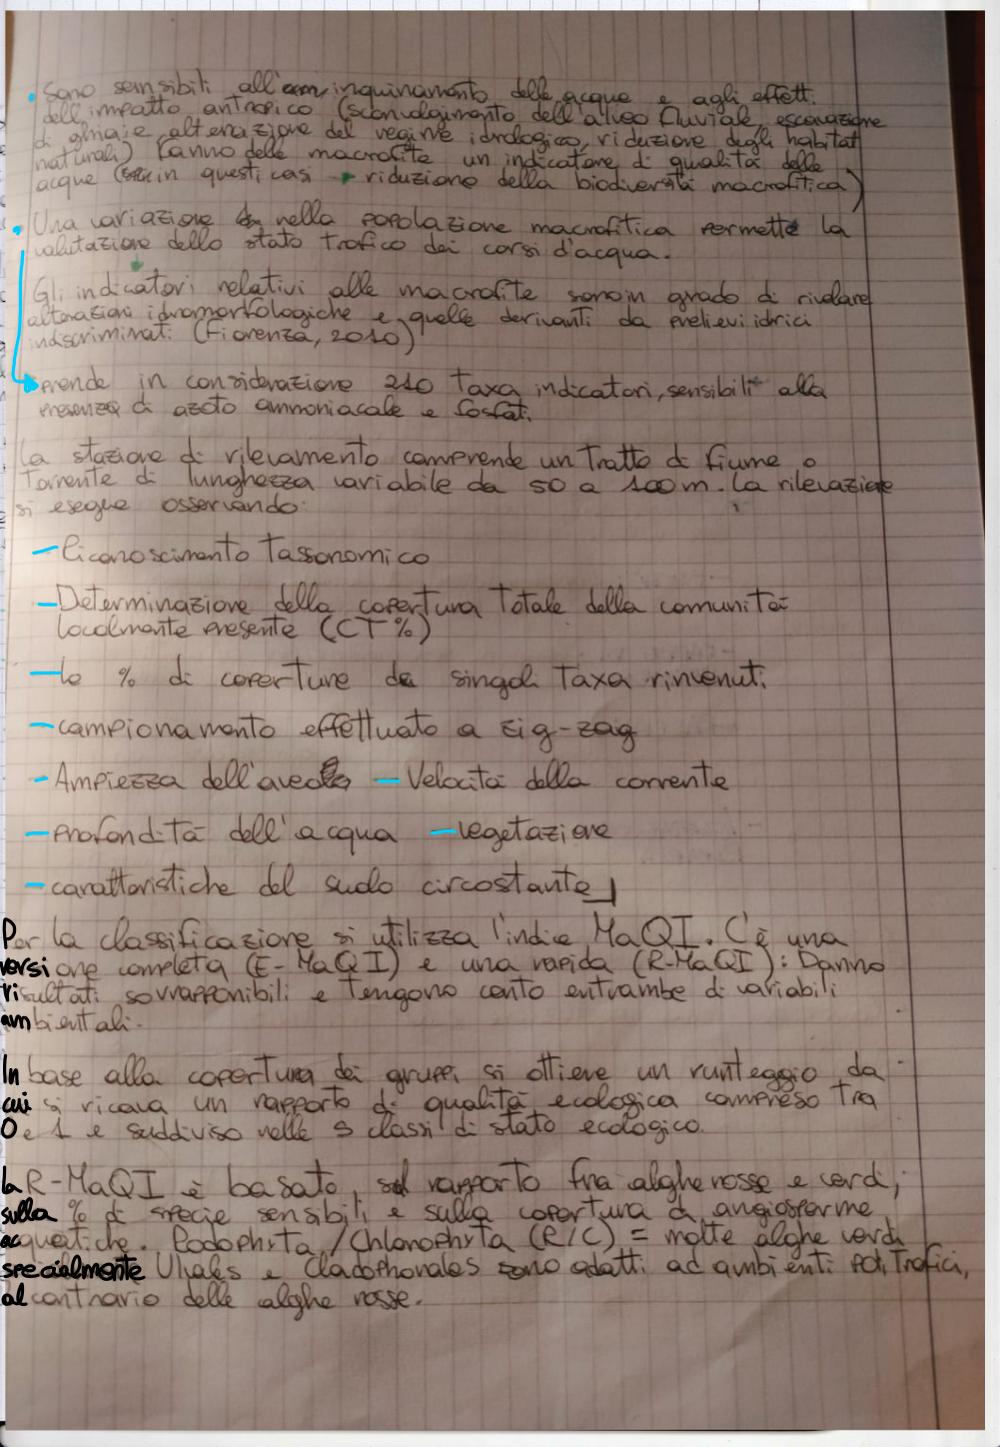 • Sono sensibili all'inquinamento delle acque e agli effetti
dell'impatto antropico (sconvolgimento dell'alveo fluviale, escavazione
di ghiaie, alterazione del regime idrologico, riduzione degli habitat
naturali) fanno delle macrofite un indicatore di qualità delle
acque (in questi casi → riduzione della biodiversità macrofitica)
• Una variazione nella popolazione macrofitica permette la
valutazione dello stato trofico dei corsi d'acqua.
Gli indicatori relativi alle macrofite sono in grado di rivelare
alterazioni idromorfologiche e quelle derivanti da prelievi idrici
indiscriminati (Fiorenza, 2010)
Prende in considerazione 210 taxa indicatori, sensibili alla
presenza di azoto ammoniacale e fosfati.
La stazione di rilevamento comprende un tratto di fiume o
torrente di lunghezza variabile da 50 a 100 m. La rilevazione
si esegue osservando:
- Riconoscimento tassonomico
- Determinazione della copertura totale della comunità
localmente presente (CT%)
- la % di coperture de singoli taxa rinvenuti
- campionamento effettuato a zig-zag
- Ampiezza dell'aveo - Velocità della corrente
- profondità dell'acqua - vegetazione
- caratteristiche del suolo circostante
Per la classificazione si utilizza l'indice MaQI. C'è una
versione completa (E-MaQI) e una rapida (R-MaQI): Danno
risultati sovrapponibili e tengono conto entrambe di variabili
ambientali.
In base alla copertura dei gruppi si ottiene un punteggio da
cui si ricava un rapporto di qualità ecologica compreso tra
0 e 1 e suddiviso nelle 5 classi di stato ecologico.
La R-MaQI è basato sul rapporto fra alghe rosse e verdi,
sulla % di specie sensibili e sulla copertura di angiosperme
acquatiche. Rodophyta/Chlorophyta (R/C) = molte alghe verdi
specialmente Ulvales e Cladophorales sono adatti ad ambienti politrofici,
al contrario delle alghe rosse.